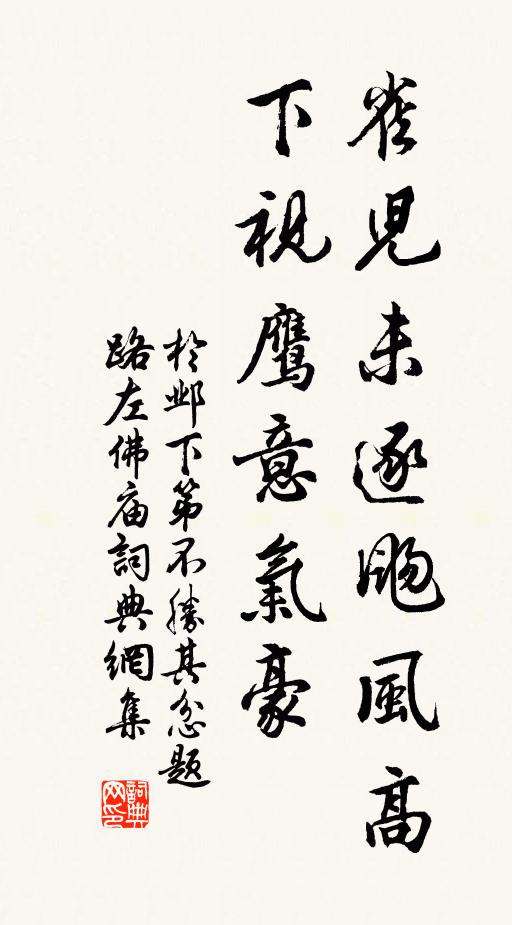 雀兒未逐颺風高
下視鷹意氣豪
於邺下第不勝其忿题
路左佛庙詞典網集
詞典网印